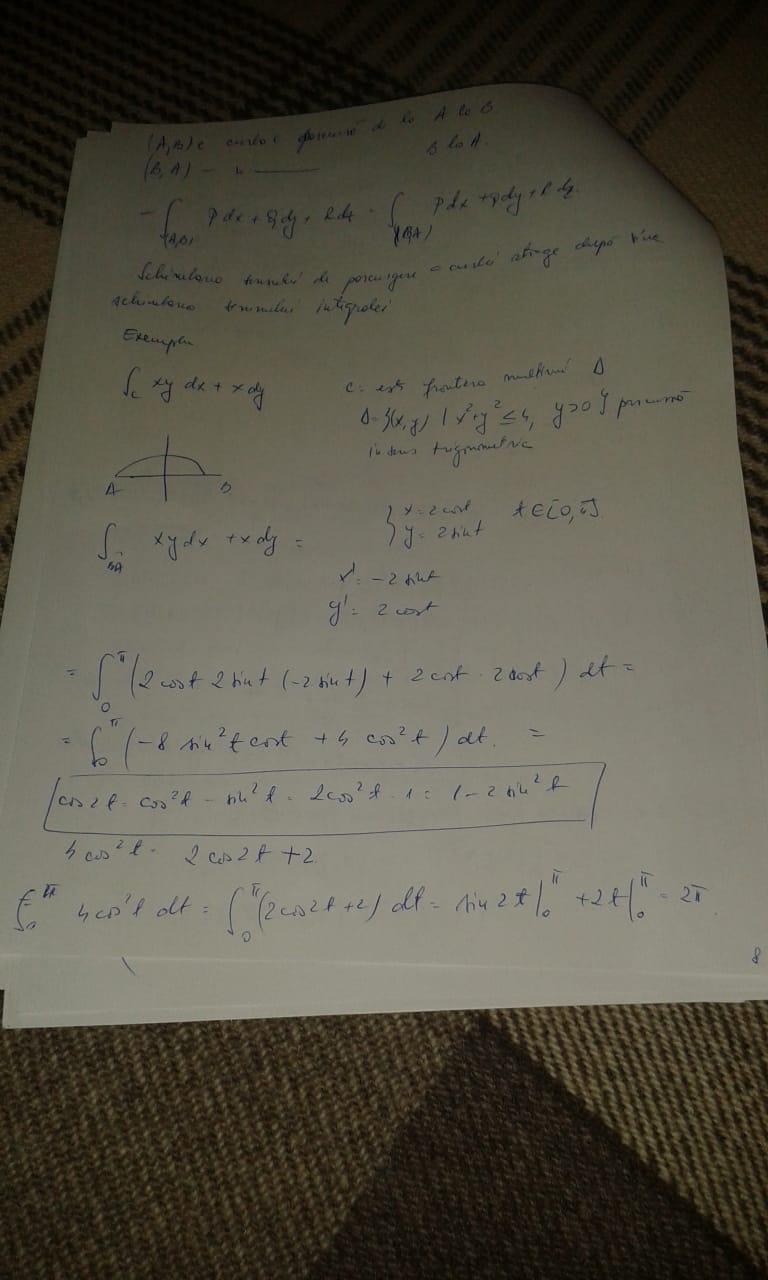 (A,B) e curba parcursă de la A la B
(B,A) — " — B la A.
- ∫_(A,B) P dx + Q dy + R dz = ∫_(B,A) P dx + Q dy + R dz.
Schimbarea sensului de parcurgere a curbei atrage după sine
schimbarea semnului integralei
Exemplu
∫_C xy dx + x dy C: este frontiera mulțimii Δ
Δ = {(x,y) | x² + y² ≤ 4, y>0} parcursă
în sens trigonometric
A B
∫_BA xy dx + x dy = { x = 2 cos t t ∈ [0, π]
y = 2 sin t
x' = -2 sin t
y' = 2 cos t
= ∫_0^π (2 cos t 2 sin t (-2 sin t) + 2 cos t · 2 cos t) dt =
= ∫_0^π (-8 sin² t cos t + 4 cos² t) dt. =
cos 2t = cos² t - sin² t = 2 cos² t - 1 = 1 - 2 sin² t
4 cos² t = 2 cos 2t + 2
∫_0^π 4 cos² t dt = ∫_0^π (2 cos 2t + 2) dt = sin 2t |_0^π + 2t |_0^π = 2π.
8